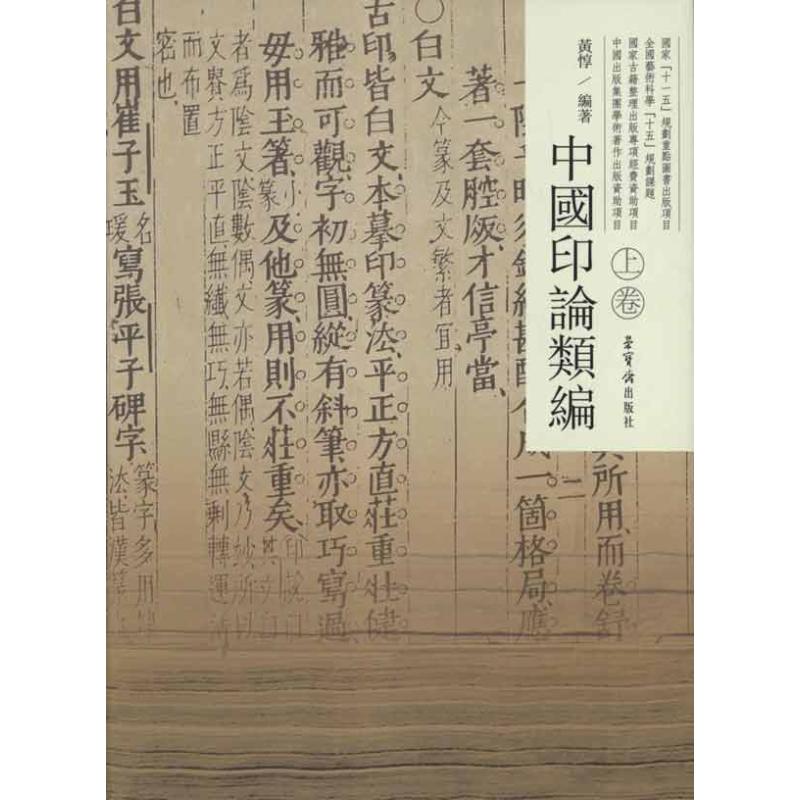 國家「十一五」規劃重點圖書出版項目
全國藝術科學「十五」規劃課題
國家古籍整理出版專項經費資助項目
中國出版集團學術著作出版資助項目
黃惇／編著
中國印論類編
上卷
榮寶齋出版社
其所用而卷舒
二
合成一箇格局應
著一套腔版才信亭當
〇白文
今篆及文繁者宜用
古印皆白文本摹印篆法平正方直莊重壯健
雅而可觀字初無圓縱有斜筆亦取巧寫過
毋用玉箸篆小及他篆用則不莊重矣
者爲陰文陰數偶文亦若偶陰文乃妙所以
文貴方正平直無纖無巧無縣無剩轉運
而布置
密也
白文用崔子玉瑗名寫張平子碑字
篆字多用
法皆漢篆